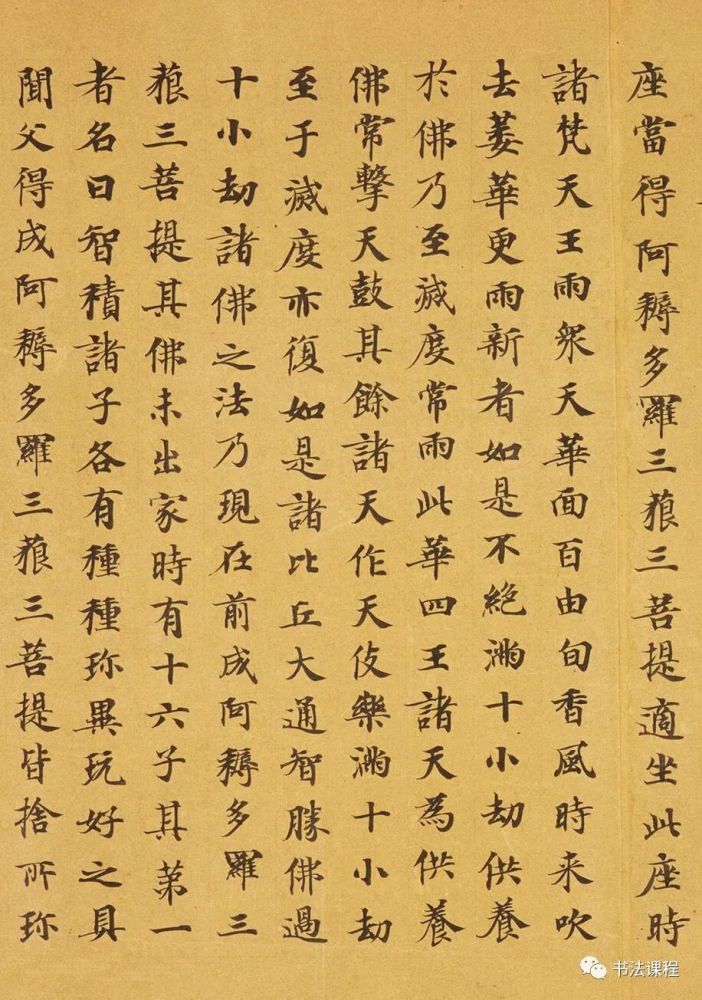 座當得阿耨多羅三藐三菩提適坐此座時
諸梵天王雨眾天華面百由旬香風時来吹
去萎華更雨新者如是不絕滿十小劫供養
於佛乃至滅度常雨此華四王諸天為供養
佛常擊天鼓其餘諸天作天伎樂滿十小劫
至于滅度亦復如是諸比丘大通智勝佛過
十小劫諸佛之法乃現在前成阿耨多羅三
藐三菩提其佛未出家時有十六子其第一
者名曰智積諸子各有種種珎異玩好之具
聞父得成阿耨多羅三藐三菩提皆捨所珎
书法课程